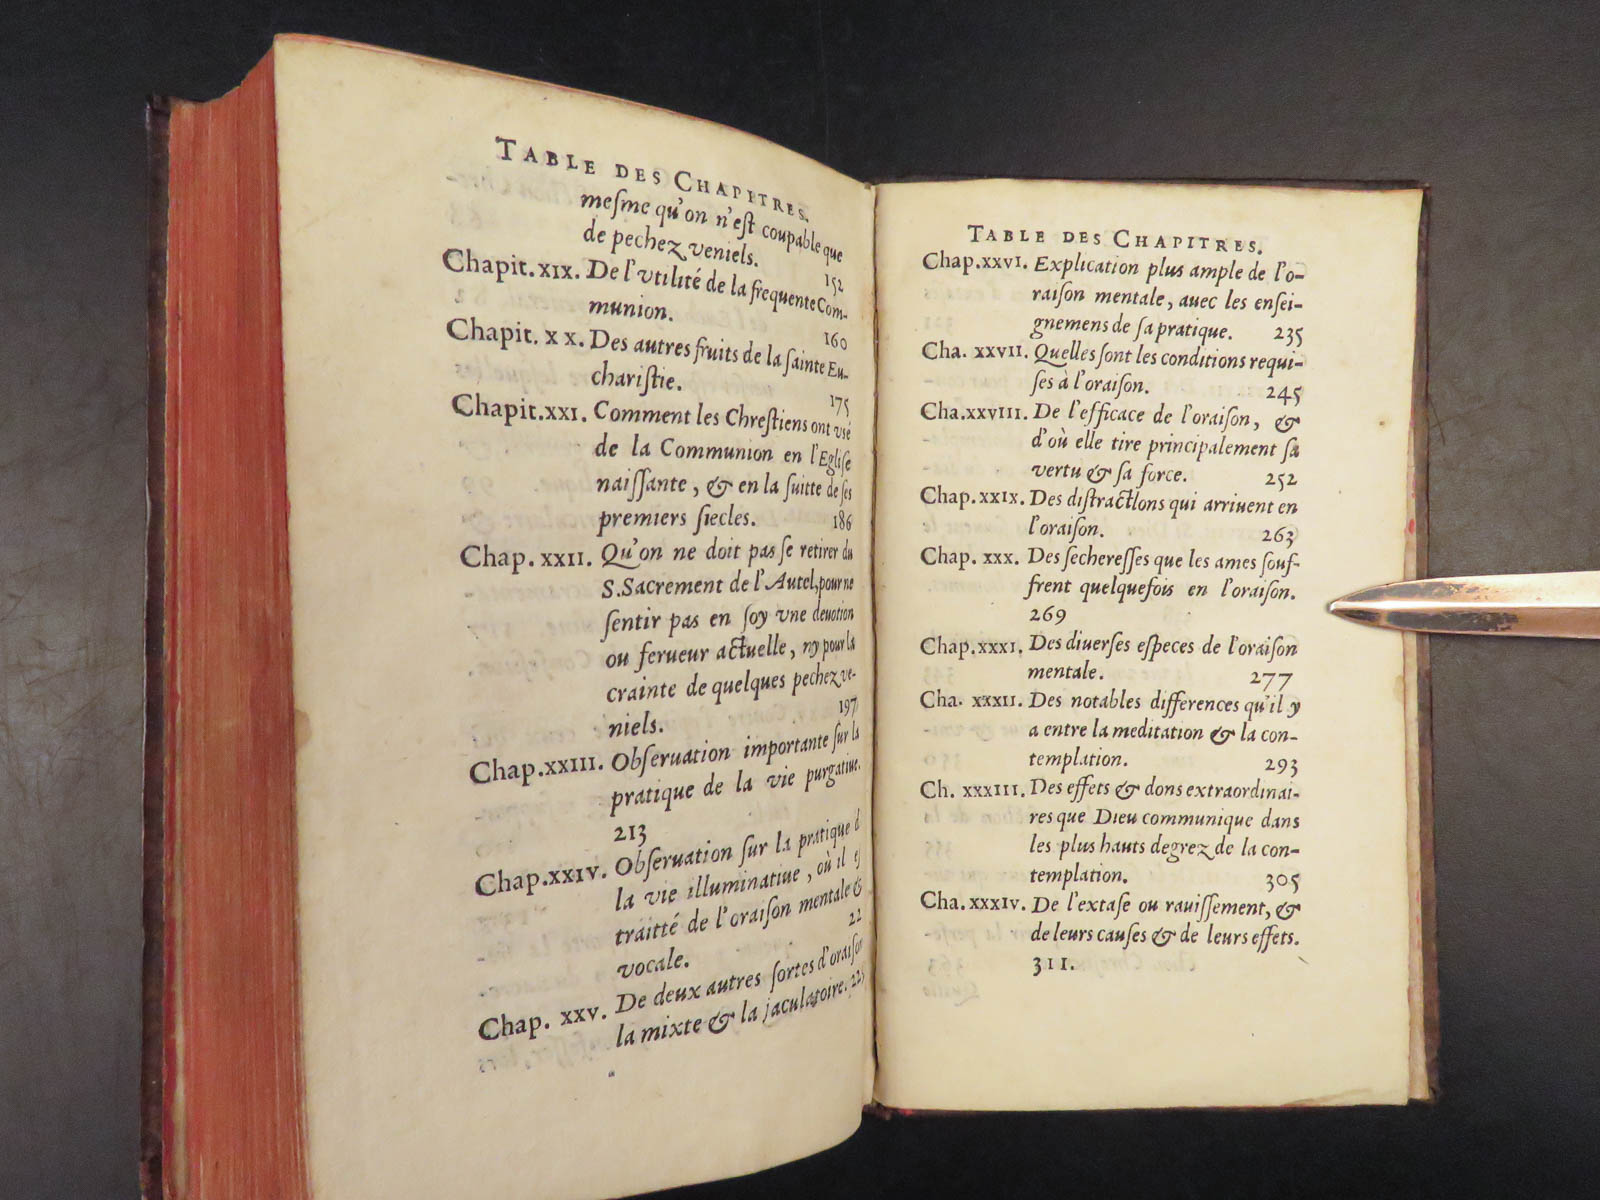 TABLE DES CHAPITRES.
meſme qu'on n'eſt coupable que
de pechez veniels. 152
Chapit. XIX. De l'vtilité de la frequente Com-
munion. 160
Chapit. XX. Des autres fruits de la ſainte Eu-
chariſtie. 175
Chapit. XXI. Comment les Chreſtiens ont vsé
de la Communion en l'Egliſe
naiſſante, & en la ſuitte de ſes
premiers ſiecles. 186
Chap. XXII. Qu'on ne doit pas ſe retirer du
S. Sacrement de l'Autel, pour ne
ſentir pas en ſoy vne deuotion
ou ferueur actuelle, ny pour la
crainte de quelques pechez ve-
niels. 197
Chap. XXIII. Obſeruation importante ſur la
pratique de la vie purgatiue.
213
Chap. XXIV. Obſeruation ſur la pratique d
la vie illuminatiue, où il eſ
traitté de l'oraiſon mentale &
vocale. 22
Chap. XXV. De deux autres ſortes d'oraiſon
la mixte & la jaculatoire. 225
TABLE DES CHAPITRES.
Chap. XXVI. Explication plus ample de l'o-
raiſon mentale, auec les enſei-
gnemens de ſa pratique. 235
Cha. XXVII. Quelles ſont les conditions requi-
ſes à l'oraiſon. 245
Cha. XXVIII. De l'efficace de l'oraiſon, &
d'où elle tire principalement ſa
vertu & ſa force. 252
Chap. XXIX. Des diſtractIons qui arriuent en
l'oraiſon. 263
Chap. XXX. Des ſechereſſes que les ames ſouf-
frent quelquefois en l'oraiſon.
269
Chap. XXXI. Des diuerſes eſpeces de l'oraiſon
mentale. 277
Cha. XXXII. Des notables differences qu'il y
a entre la meditation & la con-
templation. 293
Ch. XXXIII. Des effets & dons extraordinai-
res que Dieu communique dans
les plus hauts degrez de la con-
templation. 305
Cha. XXXIV. De l'extaſe ou rauiſſement, &
de leurs cauſes & de leurs effets.
311.